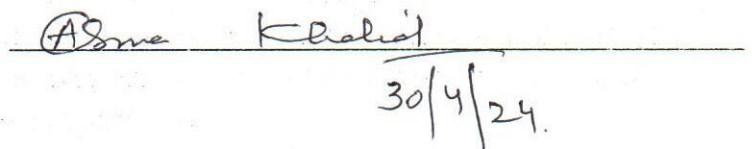 Asma Khalid
30/4/24.